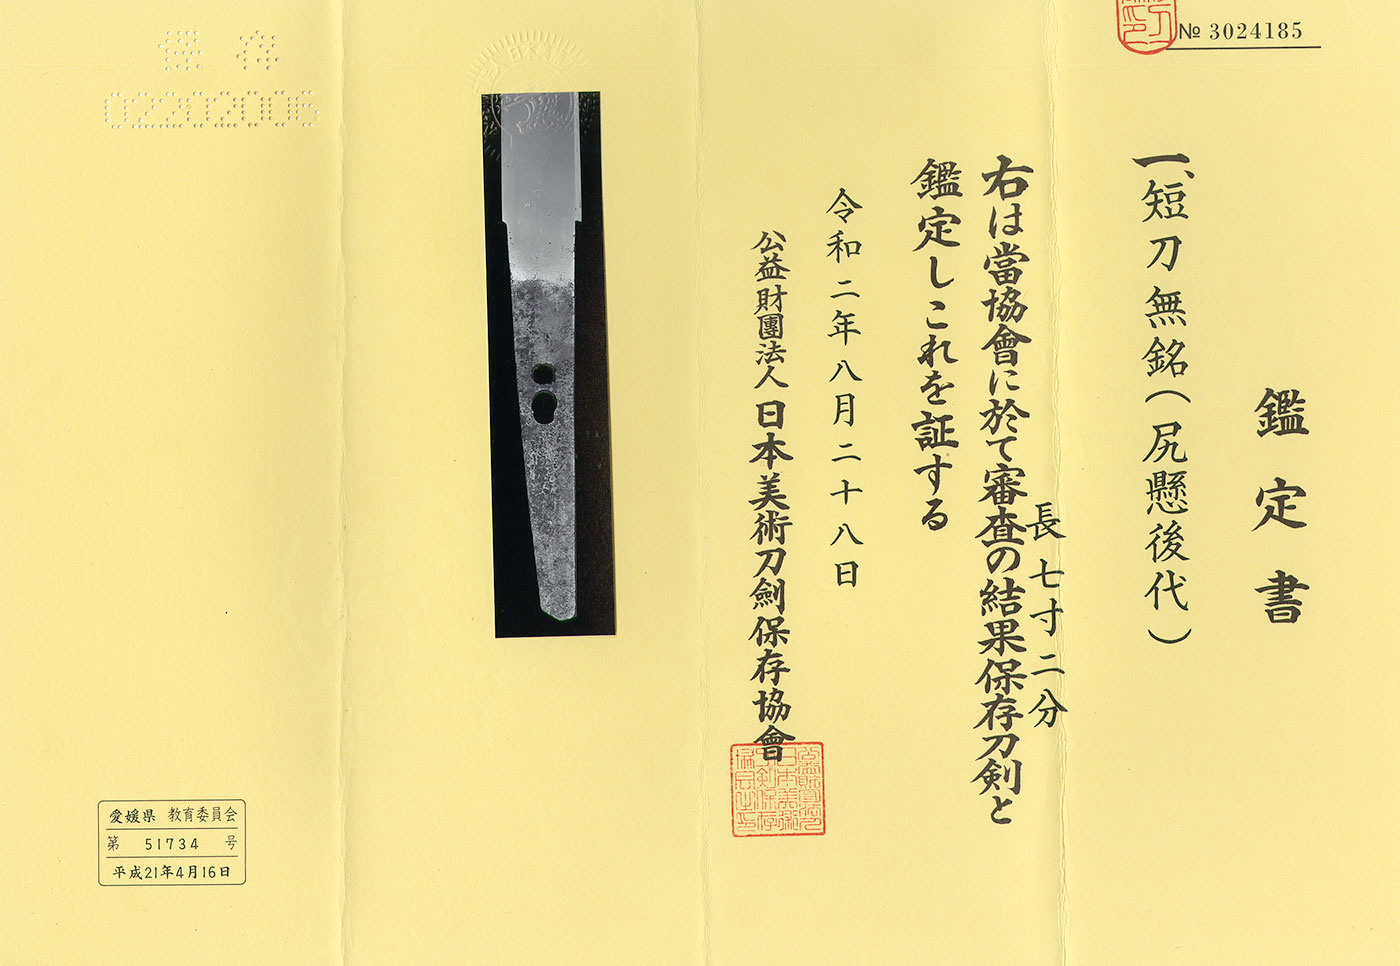 № 3024185
鑑定書
一、短刀無銘(尻懸後代)
長七寸二分
右は當協會に於て審査の結果保存刀剣と
鑑定しこれを証する
令和二年八月二十八日
公益財團法人日本美術刀劍保存協會
保存
02202006
愛媛県 教育委員会
第 51734 号
平成21年4月16日